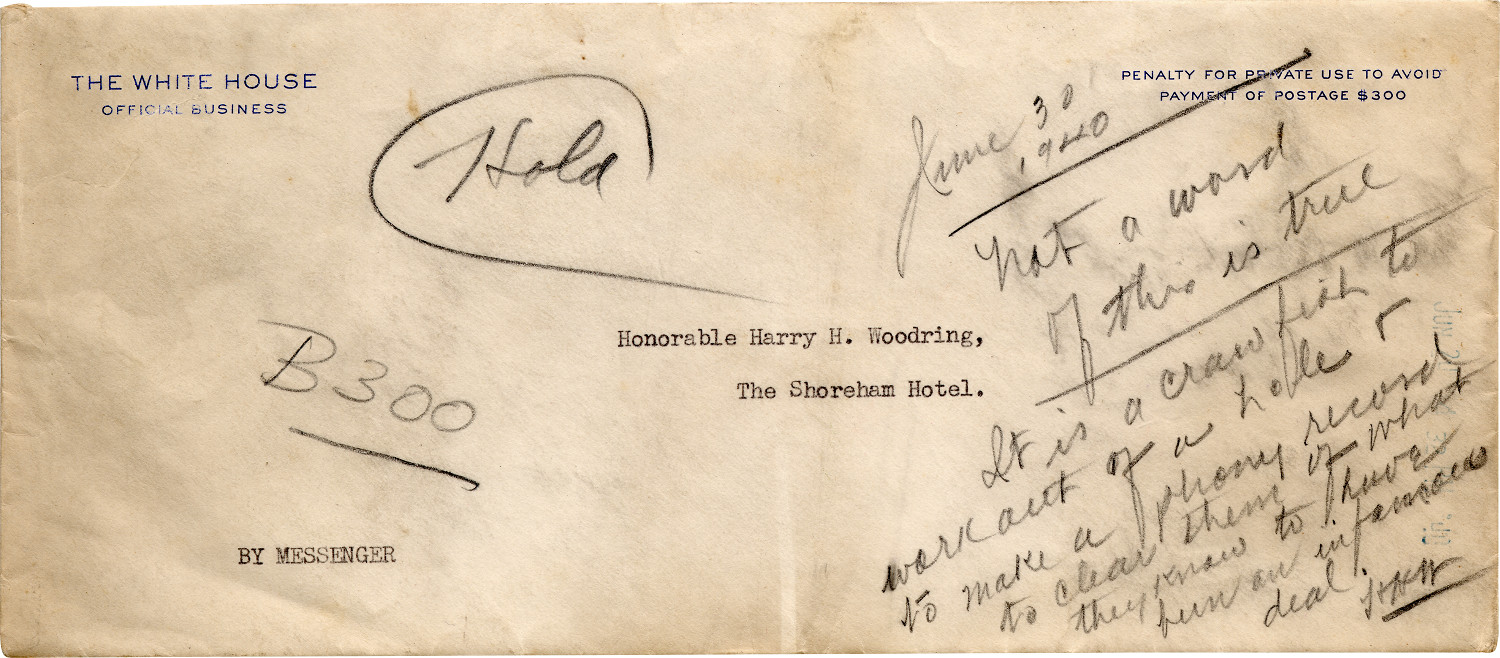 THE WHITE HOUSE
OFFICIAL BUSINESS
PENALTY FOR PRIVATE USE TO AVOID
PAYMENT OF POSTAGE $300
Hold
June 30
1940
Not a word
of this is true
It is a crawfish to
work out of a hole &
to make a phony record
to clear them of what
they know to have
been an infamous
deal.
HHW
Honorable Harry H. Woodring,
The Shoreham Hotel.
B300
BY MESSENGER